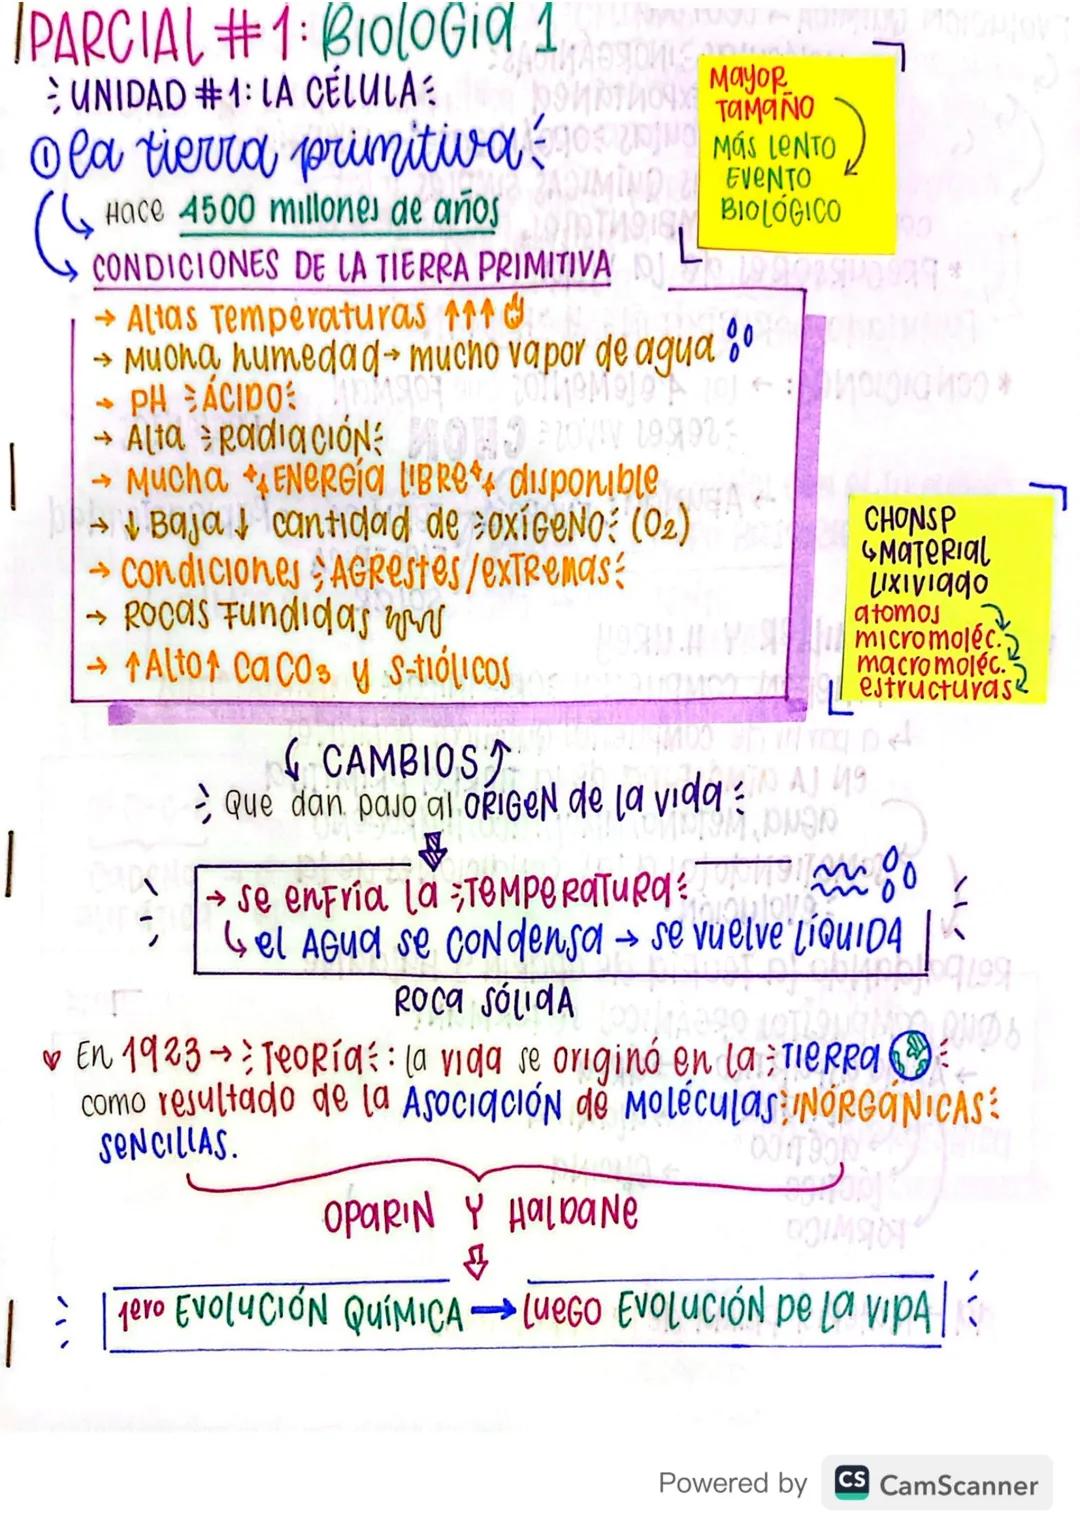 PARCIAL #1: Biología 1
UNIDAD #1: LA CÉLULA
① La tierra primitiva
Hace 4500 millones de años
CONDICIONES DE LA TIERRA PRIMITIVA
→ Altas Temperaturas ↑↑↑
→ Mucha humedad → mucho vapor de agua
→ PH ÁCIDO
→ Alta Radiación
→ Mucha ENERGía LIBRe disponible
→ ↓ Baja ↓ cantidad de oxígeno (O₂)
→ condiciones AGRestes/exTRemas
→ Rocas Fundidas
→ ↑Alto↑ CaCO₃ y S-tiólicos
Mayor
Tamaño
Más lento
Evento
Biológico
CHONSP
↳ Material
Lixiviado
atomos
micromoléc.
macromoléc.
estructuras
CAMBIOS
Que dan paso al ORIGEN de la vida
→ se enfría la TEMPERATURA
↳ el AGUA se CONdensa → se vuelve LÍQUIDA
ROCA SÓLIDA
En 1923 → Teoría: la vida se originó en la TIERRA
como resultado de la Asociación de Moléculas INORGÁNICAS
SENCILLAS.
OPARIN Y HALDANE
1ero EVOLUCIÓN QUÍMICA → LUEGO EVOLUCIÓN DE LA VIDA
Powered by CS CamScanner